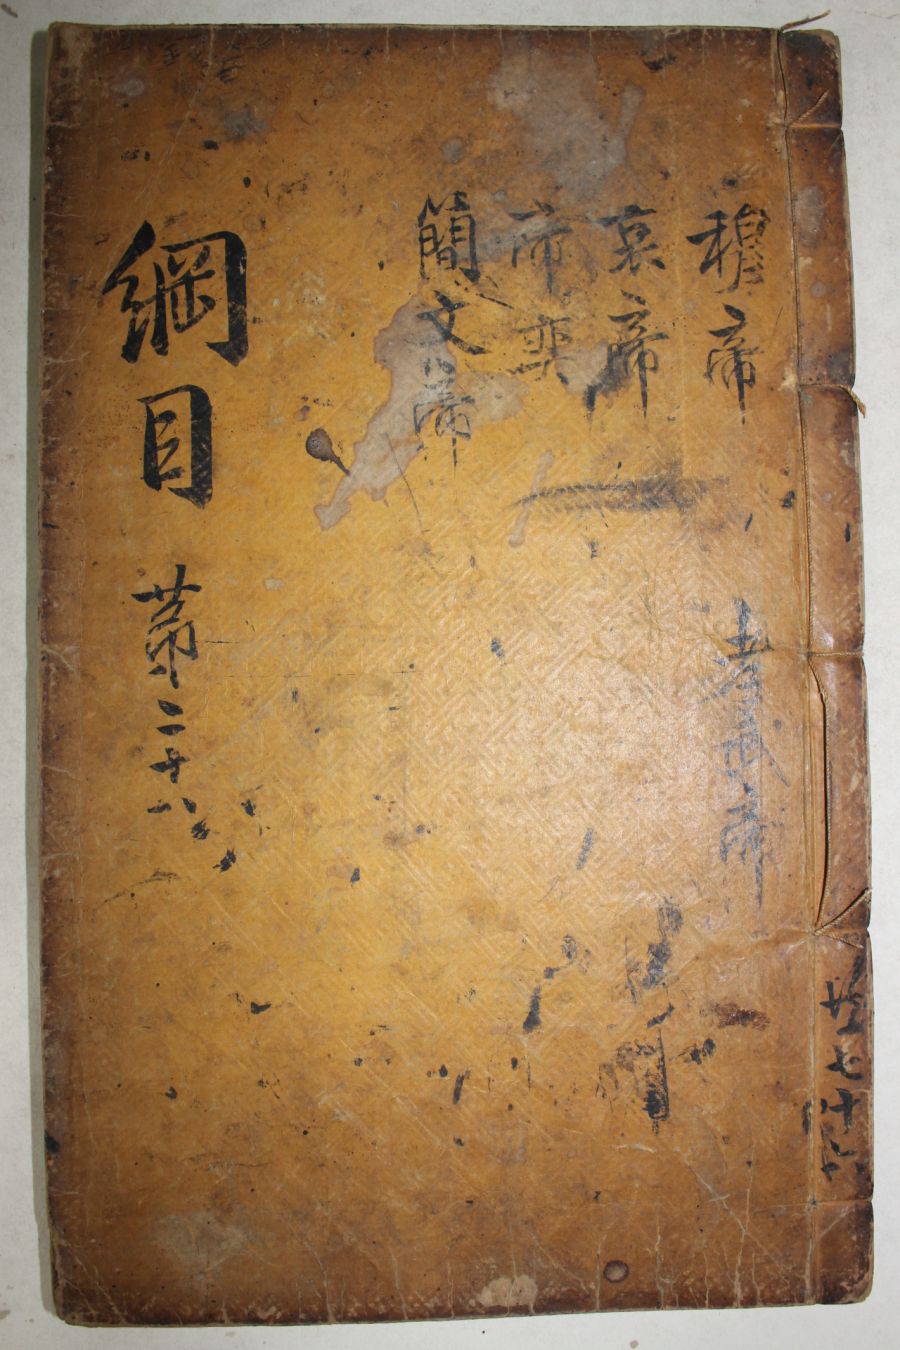 穆帝
哀帝
帝奕
簡文帝
孝武帝
綱目
第二十八
共七十六